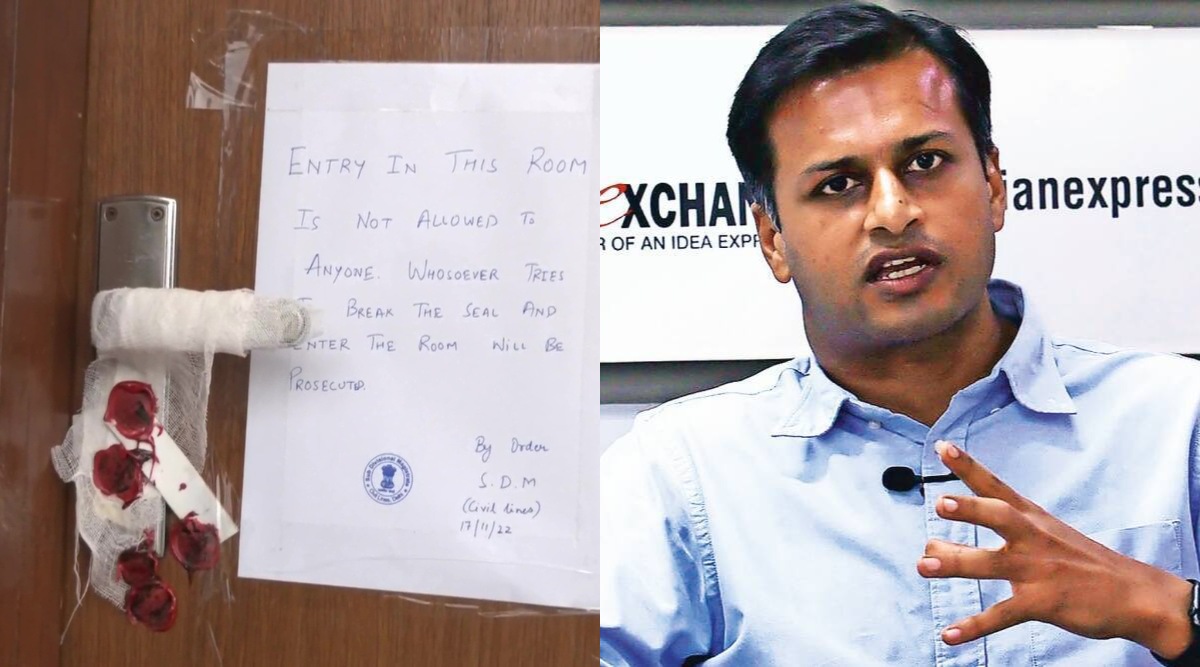 ENTRY IN THIS ROOM
IS NOT ALLOWED TO
ANYONE. WHOSOEVER TRIES
BREAK THE SEAL AND
ENTER THE ROOM WILL BE
PROSECUTED.
By Order
S.D.M
(Civil lines)
17/11/22
Sub Divisional Magistrate
Civil Lines, Delhi
eXCHAN
R OF AN IDEA EXP
ianexpress